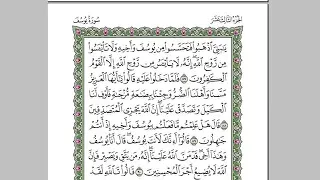 الجزء الثالث عشر
سورة يوسف
يَٰبَنِيَّ ٱذْهَبُوا۟ فَتَحَسَّسُوا۟ مِن يُوسُفَ وَأَخِيهِ وَلَا تَا۟يْـَٔسُوا۟
مِن رَّوْحِ ٱللَّهِ إِنَّهُۥ لَا يَا۟يْـَٔسُ مِن رَّوْحِ ٱللَّهِ إِلَّا ٱلْقَوْمُ
ٱلْكَٰفِرُونَ ۝ فَلَمَّا دَخَلُوا۟ عَلَيْهِ قَالُوا۟ يَٰٓأَيُّهَا ٱلْعَزِيزُ
مَسَّنَا وَأَهْلَنَا ٱلضُّرُّ وَجِئْنَا بِبِضَٰعَةٍ مُّزْجَىٰةٍ فَأَوْفِ لَنَا
ٱلْكَيْلَ وَتَصَدَّقْ عَلَيْنَآ إِنَّ ٱللَّهَ يَجْزِى ٱلْمُتَصَدِّقِينَ
۝ قَالَ هَلْ عَلِمْتُم مَّا فَعَلْتُم بِيُوسُفَ وَأَخِيهِ إِذْ أَنتُمْ
جَٰهِلُونَ ۝ قَالُوٓا۟ أَءِنَّكَ لَأَنتَ يُوسُفُ قَالَ أَنَا۠ يُوسُفُ
وَهَٰذَآ أَخِى قَدْ مَنَّ ٱللَّهُ عَلَيْنَآ إِنَّهُۥ مَن يَتَّقِ وَيَصْبِرْ فَإِنَّ
ٱللَّهَ لَا يُضِيعُ أَجْرَ ٱلْمُحْسِنِينَ ۝ قَالُوا۟ تَٱللَّهِ لَقَدْ